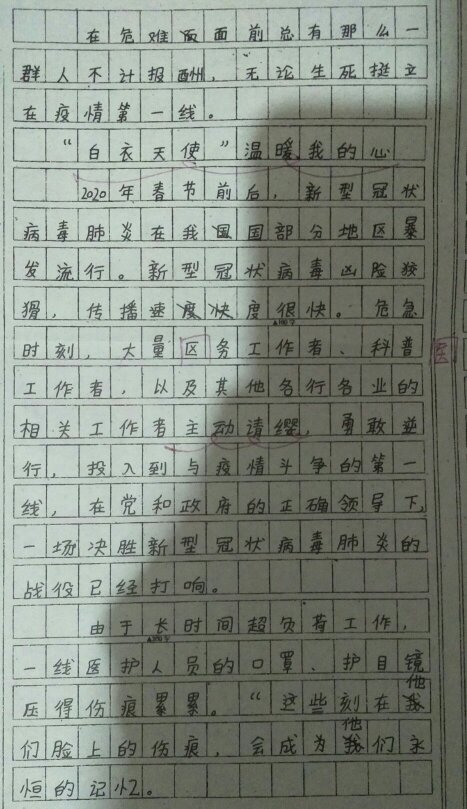 在危难面前总有那么一
群人不计报酬，无论生死挺立
在疫情第一线。
“白衣天使”温暖我的心
2020年春节前后，新型冠状
病毒肺炎在我国国部分地区暴
发流行。新型冠状病毒凶险狡
猾，传播速度快度很快。危急
时刻，大量区务工作者、科普
医
工作者，以及其他各行各业的
相关工作者主动请缨，勇敢逆
行，投入到与疫情斗争的第一
线，在党和政府的正确领导下，
一场决胜新型冠状病毒肺炎的
战役已经打响。
由于长时间超负荷工作，
一线医护人员的口罩、护目镜
压得伤痕累累。“这些刻在他
们脸上的伤痕，会成为他们永
恒的记忆。